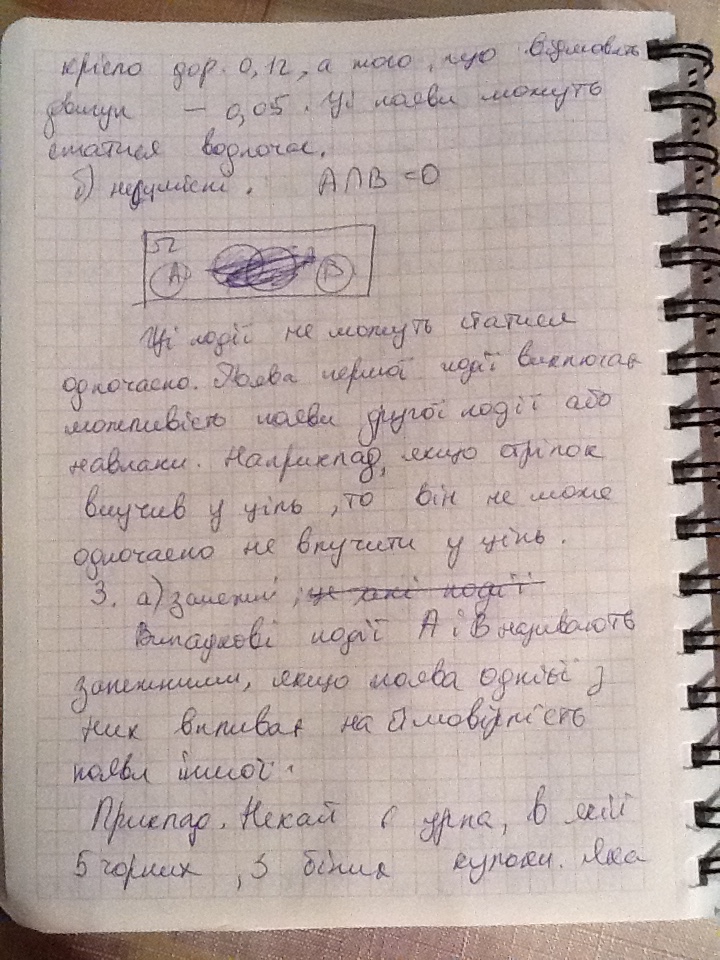 крісло дор. 0,12, а того, що відмовлять
двигун — 0,05. Ці події можуть
статися водночас.
б) несумісні. A∩B=0
Ω
A B
Ці події не можуть статися
одночасно. Поява першої події виключає
можливість появи другої події або
навпаки. Наприклад, якщо стрілок
влучив у ціль, то він не може
одночасно не влучити у ціль.
3. а) залежні,
Випадкові події A і B називають
залежними, якщо поява однієї з
них впливає на ймовірність
появи іншої.
Приклад. Нехай є урна, в якій
5 чорних, 3 білих кульки. Яка